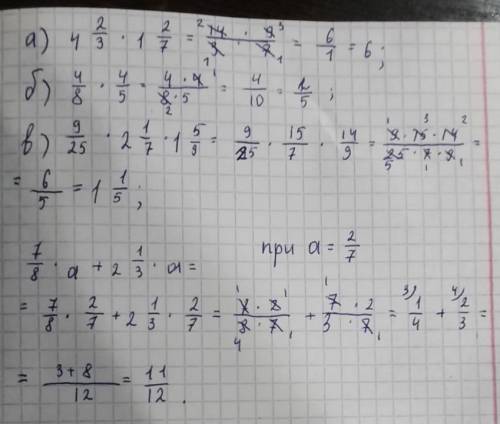 а) 4 2/3 · 1 2/7 = 14 · 9 / 3 · 7 = 6/1 = 6;
б) 4/8 · 4/5 = 4 · 4 / 8 · 5 = 4/10 = 2/5;
в) 9/25 · 2 1/7 · 1 5/9 = 9/25 · 15/7 · 14/9 = 9 · 15 · 14 / 25 · 7 · 9 =
= 6/5 = 1 1/5;
7/8 · a + 2 1/3 · a = при a = 2/7
= 7/8 · 2/7 + 2 1/3 · 2/7 = 7 · 2 / 8 · 7 + 7 · 2 / 3 · 7 = 1/4 + 2/3 =
= 3+8 / 12 = 11/12.